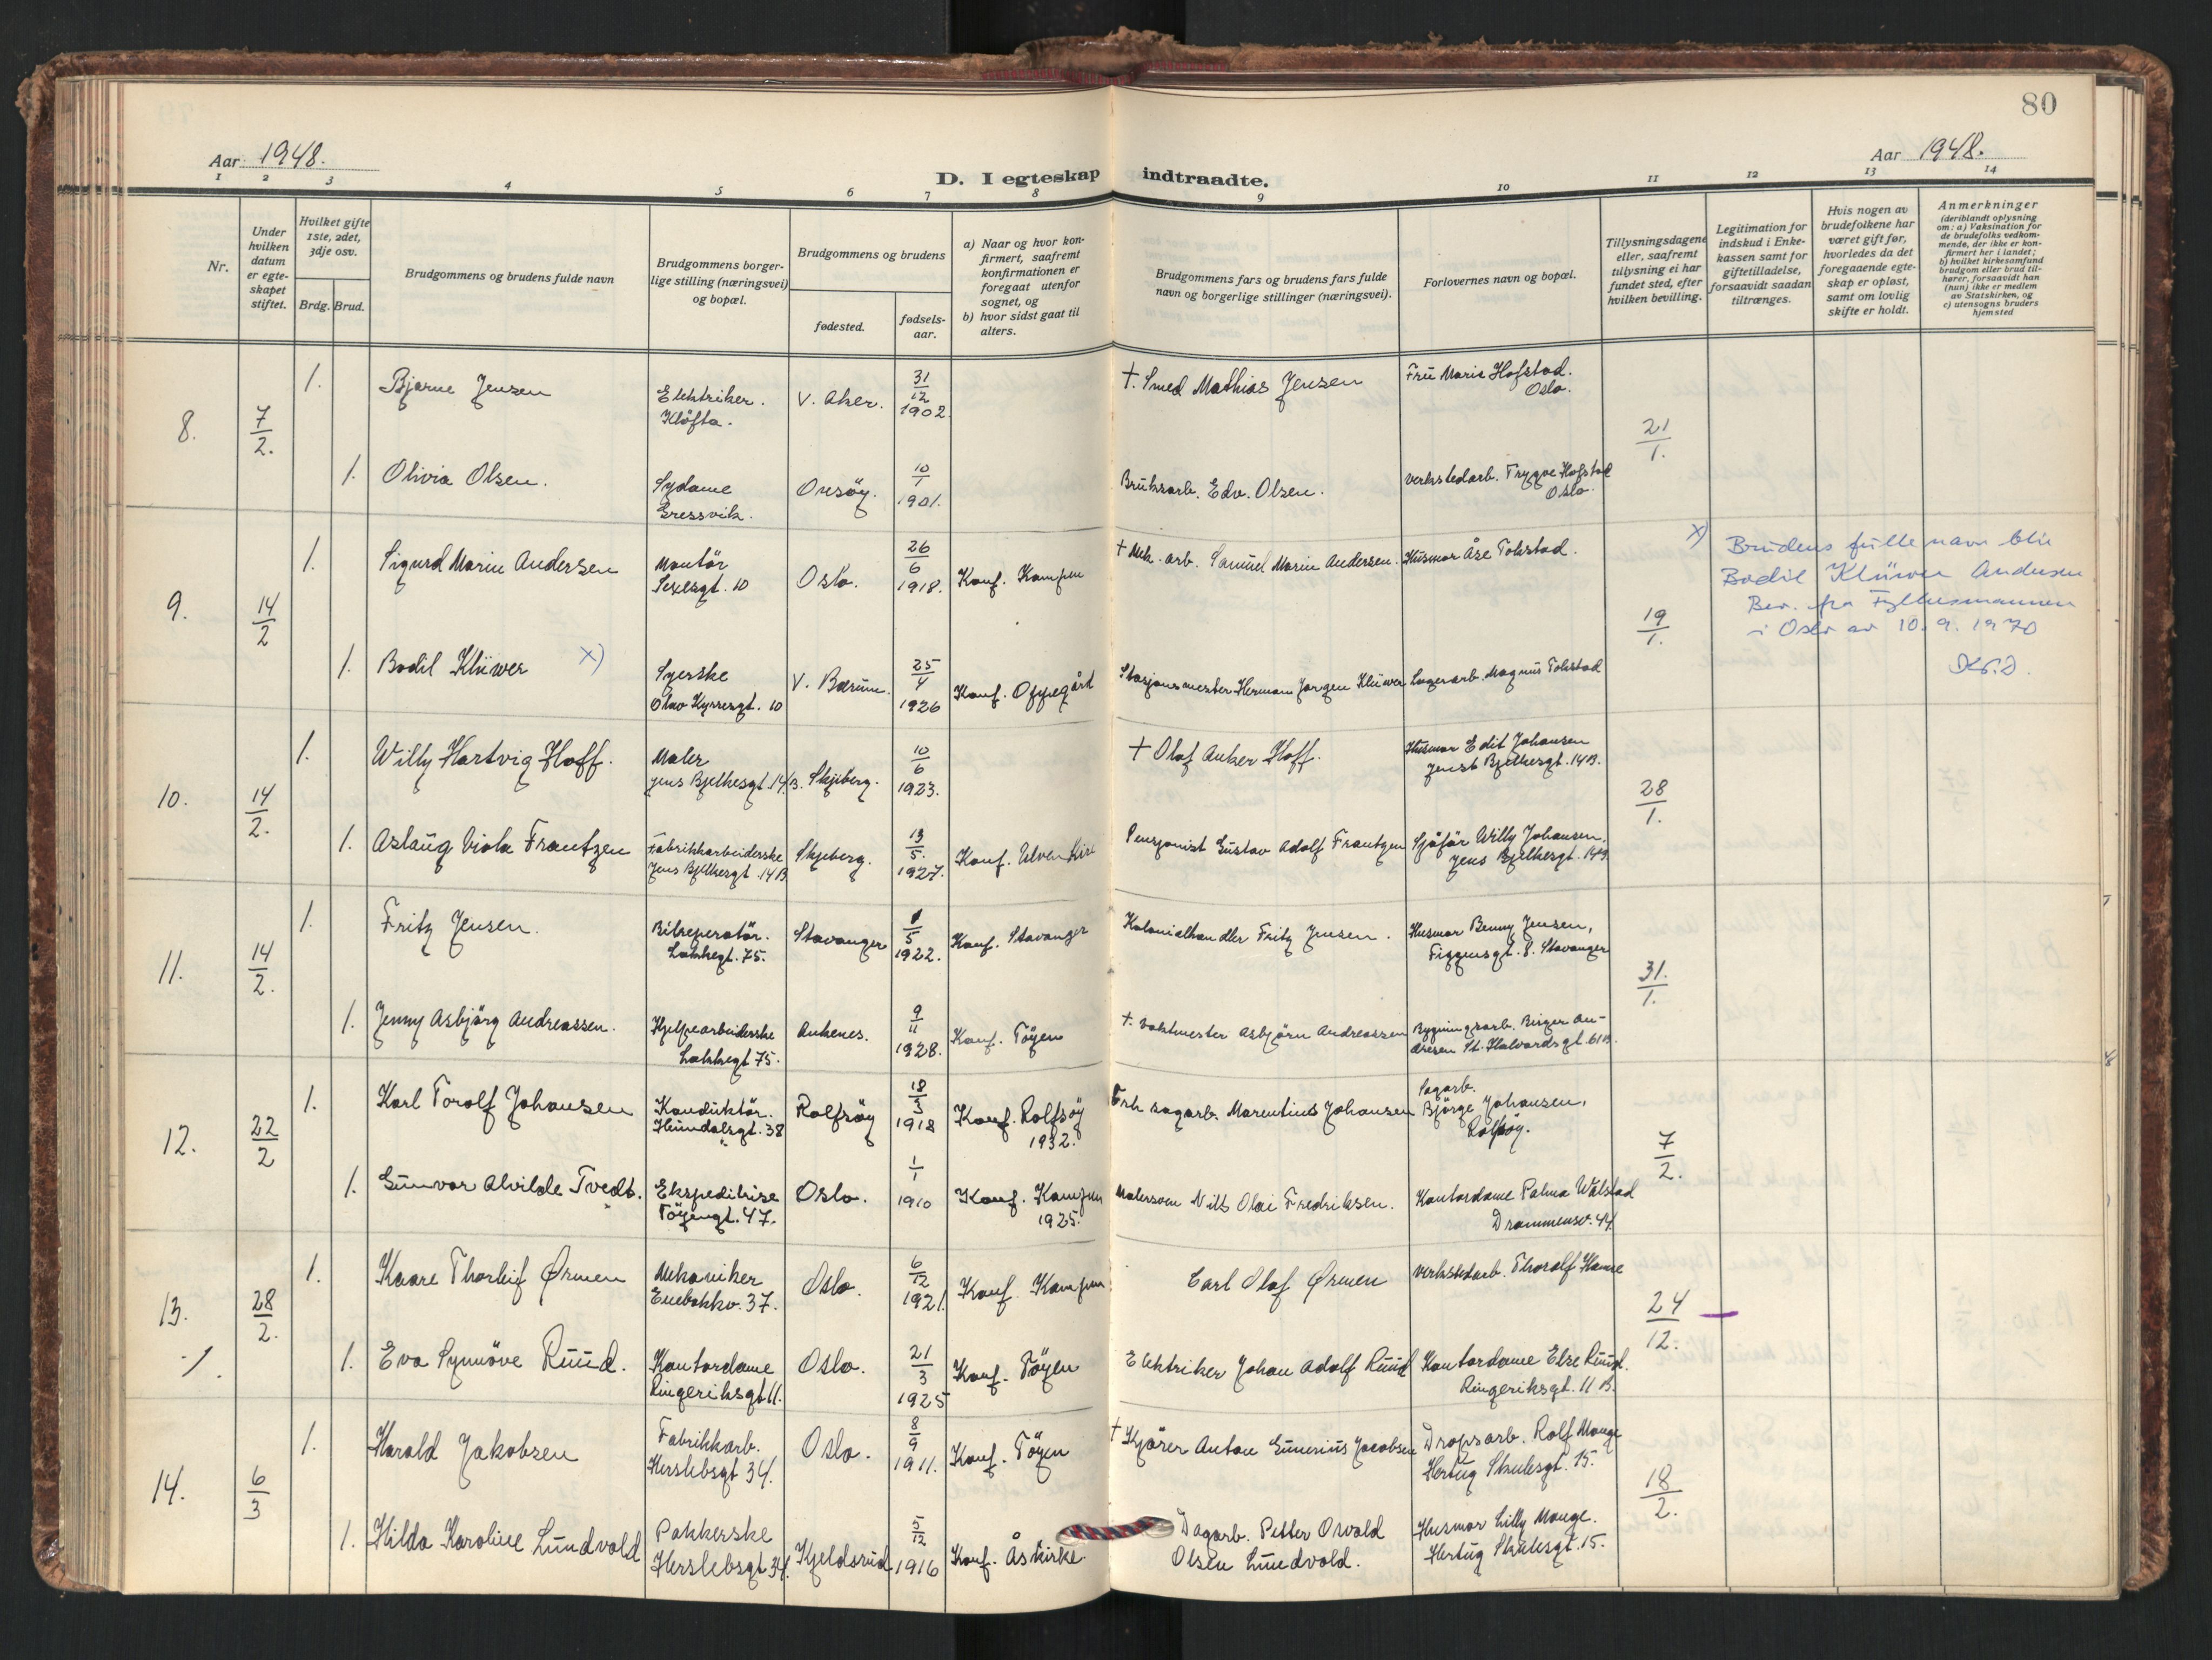 80
Aar 1948.
Aar 1948.
D. I egteskap indtraadte.
1 2 3 4 5 6 7 8 9 10 11 12 13 14
Nr.
Under hvilken datum er egteskapet stiftet.
Hvilket gifte 1ste, 2det, 3dje osv.
Brdg. Brud.
Brudgommens og brudens fulde navn
Brudgommens borgerlige stilling (næringsvei) og bopæl.
Brudgommens og brudens
fødested.
fødselsaar.
a) Naar og hvor konfirmert, saafremt konfirmationen er foregaat utenfor sognet, og
b) hvor sidst gaat til alters.
Brudgommens fars og brudens fars fulde navn og borgerlige stillinger (næringsvei).
Forlovernes navn og bopæl.
Tillysningsdagene eller, saafremt tillysning ei har fundet sted, efter hvilken bevilling.
Legitimation for indskud i Enkekassen samt for giftetilladelse, forsaavidt saadan tiltrænges.
Hvis nogen av brudefolkene har været gift før, hvorledes da det foregaaende egteskap er opløst, samt om lovlig skifte er holdt.
Anmerkninger
(deriblandt oplysning om: a) Vaksination for de brudefolks vedkommende, der ikke er konfirmert her i landet; b) hvilket kirkesamfund brudgom eller brud tilhører, forsaavidt han (hun) ikke er medlem av Statskirken, og c) utensogns bruders hjemsted
8. 7/2. 1. Bjarne Jensen Elektriker. Klöfta. V. Aker. 31/12 1902. † Smed Mathias Jensen Fru Marie Hofstad. Oslo. 21/1.
1. Olivia Olsen. Sydame Gressvik. Onsöy. 10/1 1901. Bruksarb. Edv. Olsen. Verkstedarb. Trygve Hofstad Oslo.
9. 14/2 1. Sigurd Marin Andersen Montör Sexesgt. 10 Oslo. 26/6 1918. Konf. Kampen † Mek. arb. Samuel Marin Andersen. Husmor Åse Tokstad. 19/1.
x) Brudens fulle navn blir
Bodil Klüwer Andersen
Bev. fra Fylkesmannen
i Oslo av 10.9.1970
1. Bodil Klüwer x) Syerske Olav Kyrresgt. 10 V. Bærum. 25/4 1926 Konf. Oppegård Stasjonsmester Herman Jørgen Klüwer Lagerarb. Magnus Tokstad
10. 14/2. 1. Willy Hartvig Hoff. Maler Jens Bjelkesgt. 14 B. Skjeberg. 10/6 1923. † Olaf Anker Hoff. Husmor Edit Johansen Jens Bjelkesgt. 14 B. 28/1.
1. Aslaug Viola Frantzen Fabrikkarbeiderske Jens Bjelkesgt. 14 B Skjeberg. 13/5. 1927. Konf. Ulven Pensjonist Gustav Adolf Frantzen Sjåför Willy Johansen. Jens Bjelkesgt. 14 B.
11. 14/2. 1. Fritz Jensen. Bilreperatör. Lakkegt. 75. Stavanger 1/5 1922. Konf. Stavanger Kolonialhandler Fritz Jensen. Husmor Benny Jensen, Figgensgt. 8. Stavanger 31./1.
1. Jenny Asbjörg Andreassen. Hjelpearbeiderske Lakkegt 75. Ankenes. 9/11 1928. Konf. Töyen † Vaktmester Asbjörn Andreassen Bygningsarb. Birger Andresen St. Halvardsgt. 61 B.
12. 22/2 1. Karl Torolf Johansen Konduktör. Heimdalsgt. 38 Rolfsöy 18/3 1918 Konf. Rolfsöy 1932. Frh sagarb. Marentius Johansen Sagarb. Bjørge Johansen, Rolfsöy. 7/2.
1. Gunvor Alvilde Tvedt. Ekspeditrise Töyengt. 47. Oslo. 1/1 1910 Konf. Kampen 1925. Malersven Nils Olai Fredriksen. Kontordame Palma Walstad Drammensv. 44
13. 28/2. 1. Kaare Thorleif Ørmen Mekaniker Enebakkv. 37. Oslo. 6/12 1921. Konf. Kampen Carl Olaf Ørmen Verkstedarb. Thoralf Hanse 24/12.
1. Eva Synnöve Ruud. Kontordame Ringeriksgt 11. Oslo. 21/3 1925 Konf. Töyen Elektriker Johan Adolf Ruud Kontordame Else Ruud. Ringeriksgt. 11 B.
14. 6/3 1. Harald Jakobsen Fabrikkarb. Herslebsgt 34. Oslo. 8/9 1911. Konf. Töyen † Kjörer Anton Gunerius Jacobsen Dropsarb. Rolf Mange Hertug Skulesgt. 15. 18/2.
1. Hilda Karoline Lundvold Pakkerske Herslebsgt 34. Kjeldsrud 5/12 1916 Konf. Ås kirke. Dagarb. Petter Osvald Olsen Lundvold. Husmor Lilly Mange. Hertug Skulesgt. 15.